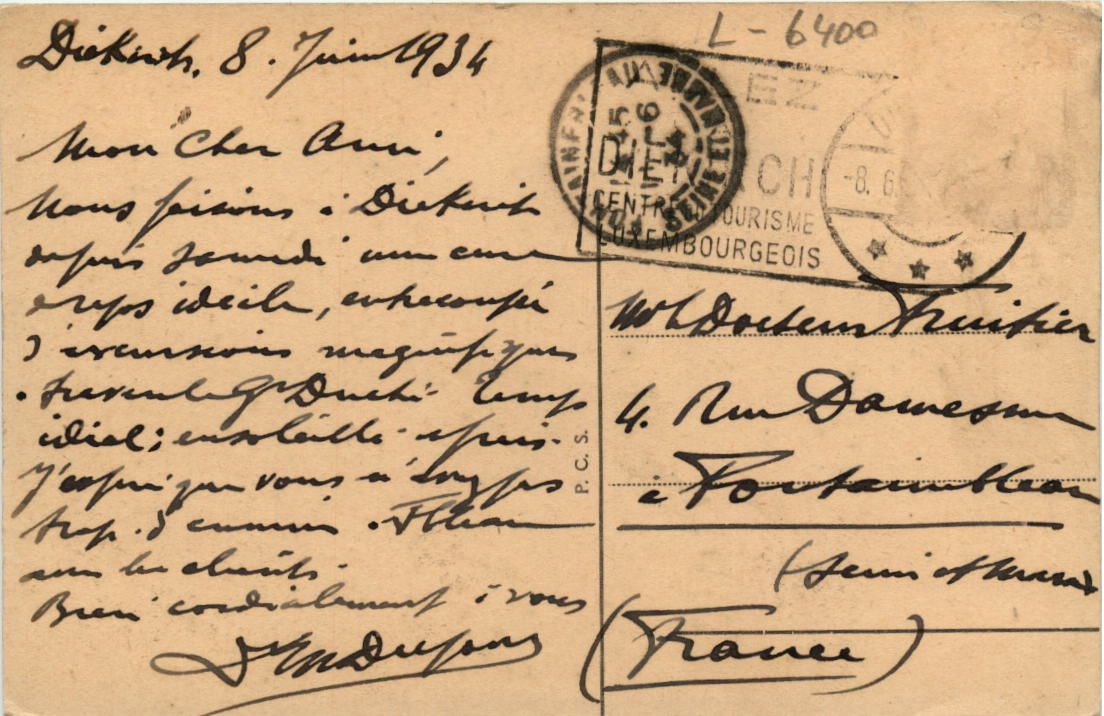 Diekirch, 8. Juin 1934
Mon Cher Ami,
Nous faisons à Diekirch
depuis samedi une cure
de repos idéale, entrecoupée
d'excursions magnifiques
à travers le Gd Duché. Temps
idéal; ensoleillé
J'espère que vous n'avez pas
trop d'ennuis
les clients.
Bien cordialement à vous
L - 6400
EZ
DIEKIRCH
CENTRE DU TOURISME
LUXEMBOURGEOIS
-8. 6
FONTAINEBLEAU
SEINE ET MARNE
P.C.S.
Mr le Docteur
4. Rue Damesme
à Fontainebleau
(Seine et Marne)
(France)